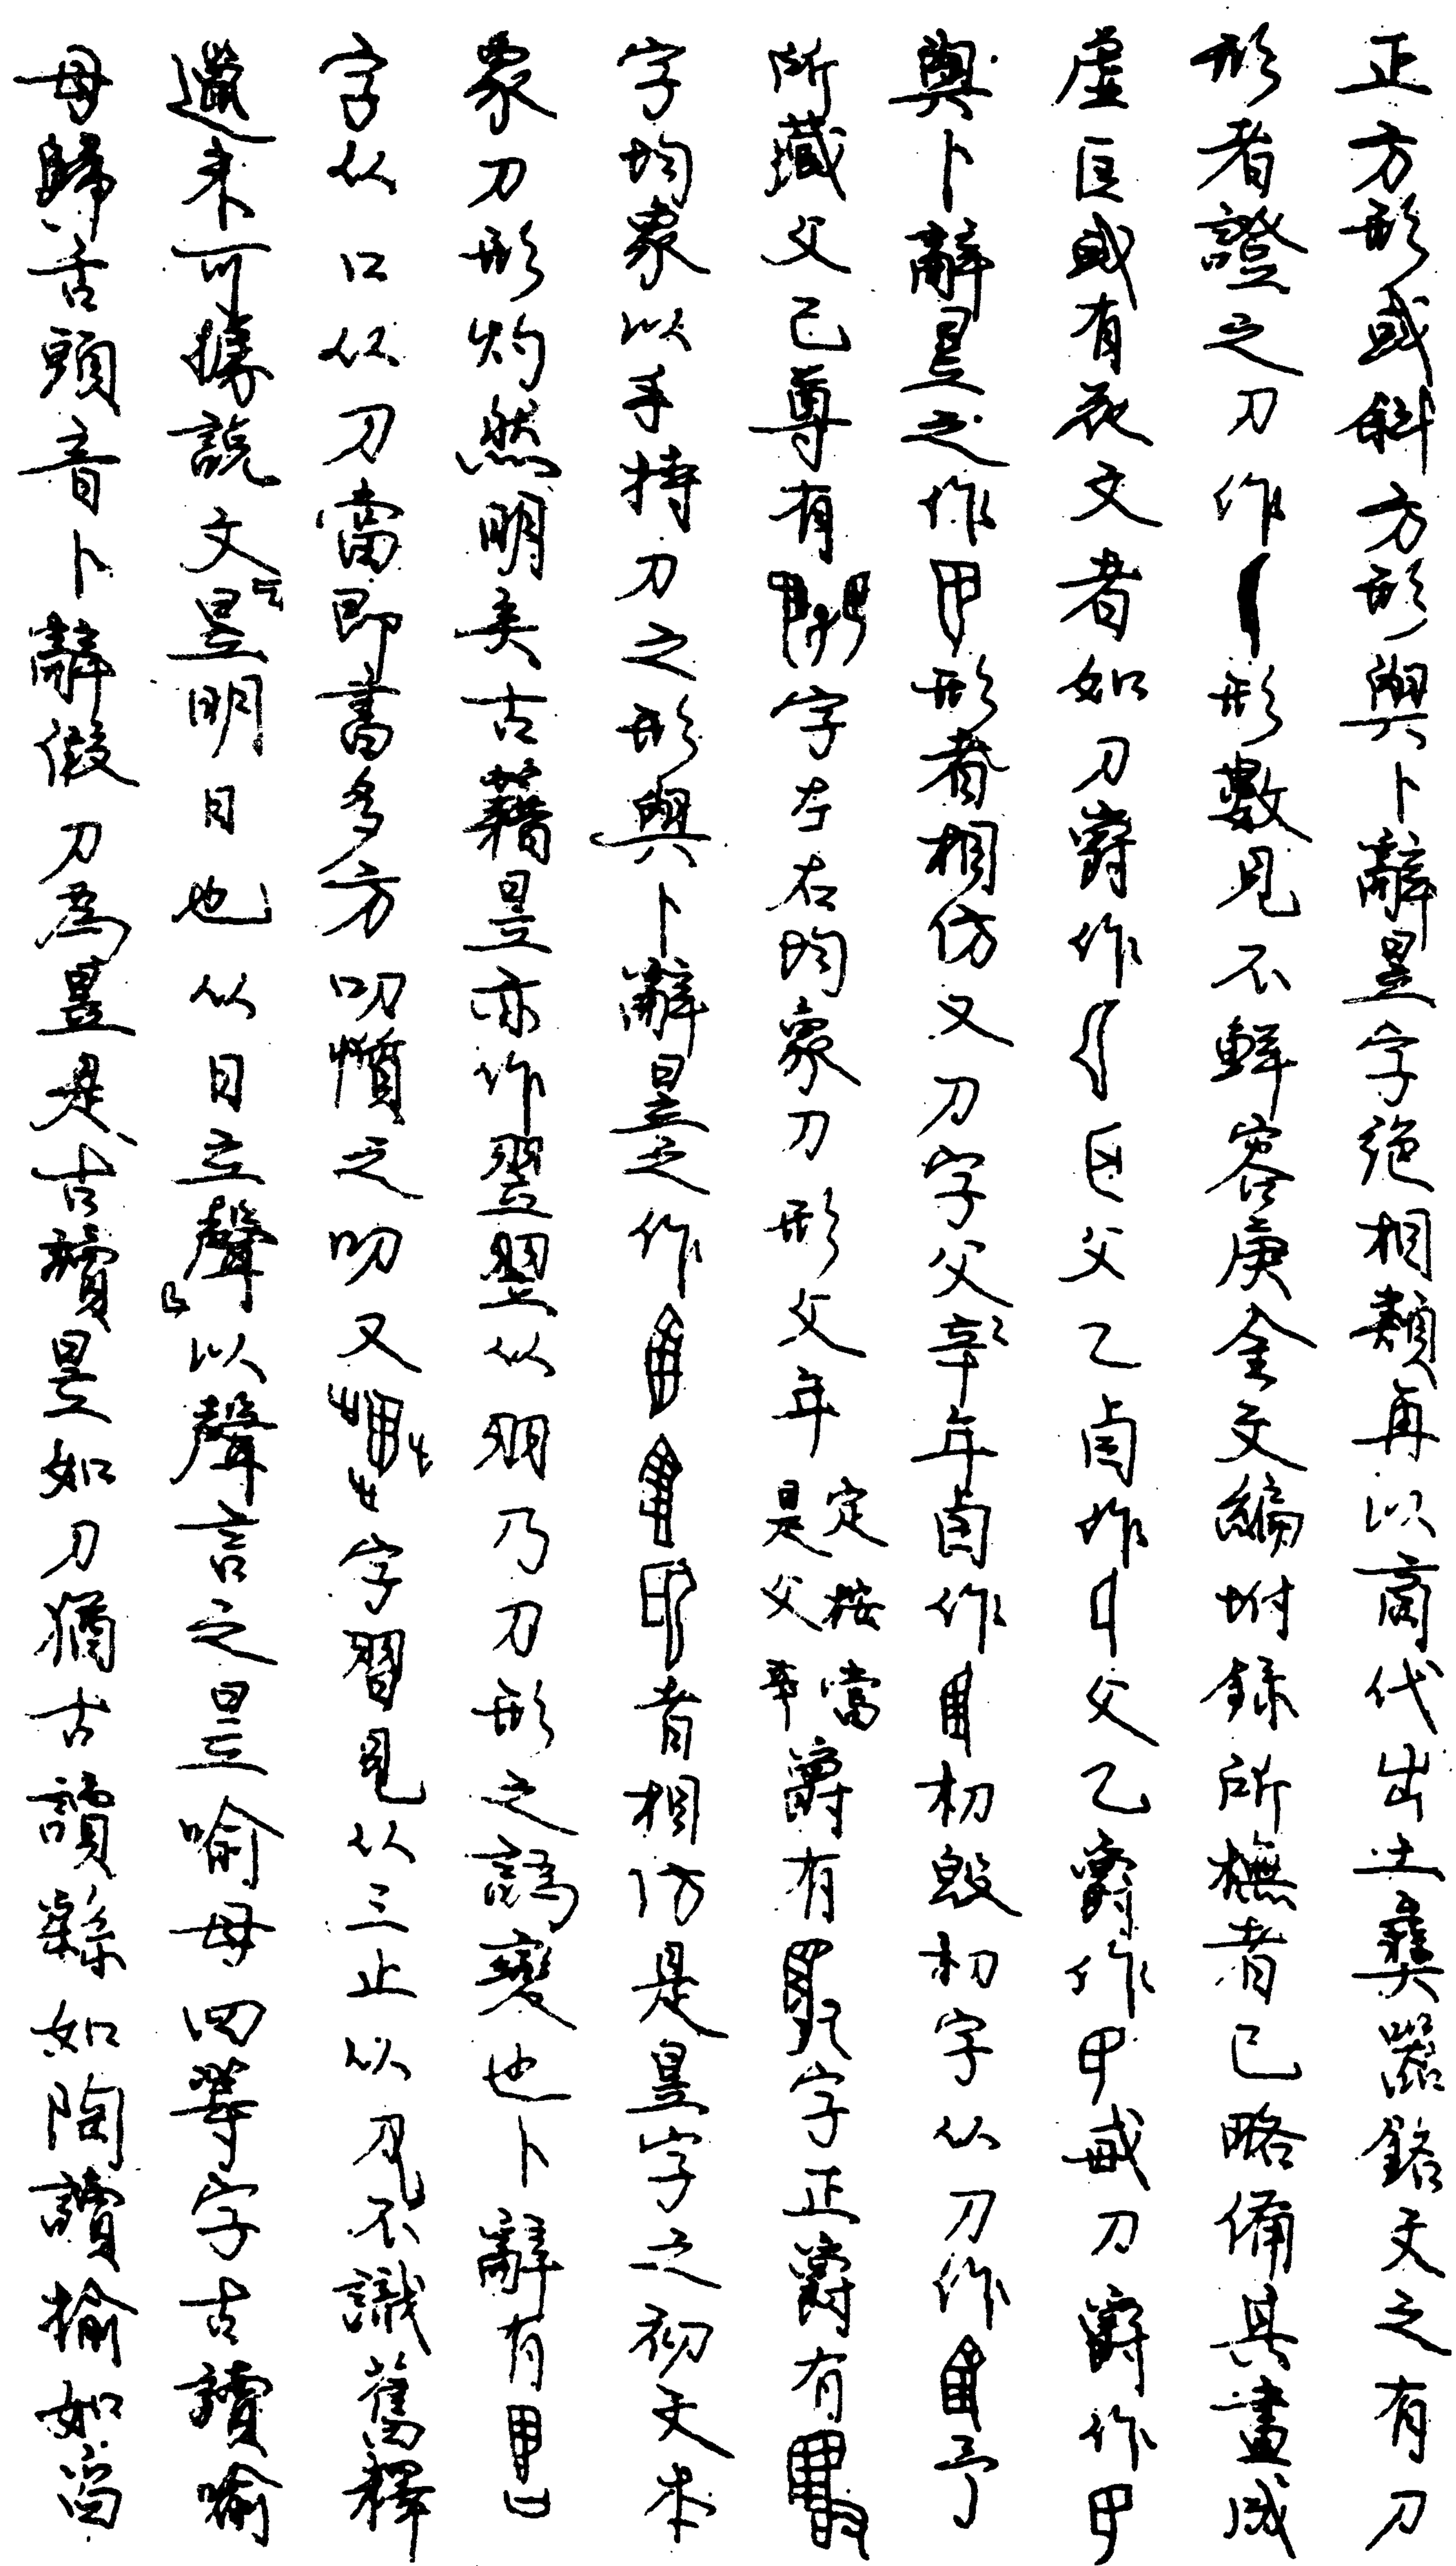 正方形或斜方形與卜辭昱字絕相類再以商代出土彝器銘文之有刀
形者證之刀作形數見不鮮容庚金文編坿錄所橅者已略備其畫成
虛匡或有花文者如刀爵作匕父乙卣作父乙爵作或刀爵作
與卜辭昱之作形者相仿又刀字父辛年卣作朷毁朷字从刀作予
所藏父己尊有字左右均象刀形父年定按當是父辛爵有字正爵有
字均象以手持刀之形與卜辭昱之作者相仿是昱字之初文本
象刀形灼然明矣古藉昱亦作翌翌从羽乃刀形之譌變也卜辭有
字从口从刀當即書多方叨懫之叨又字習見从三止从刀不識舊釋
邋未可據說文「昱明日也从日立聲」以聲言之昱喻母四等字古讀喻
母歸舌頭音卜辭假刀為昱是古讀昱如刀猶古讀繇如陶讀揄如舀